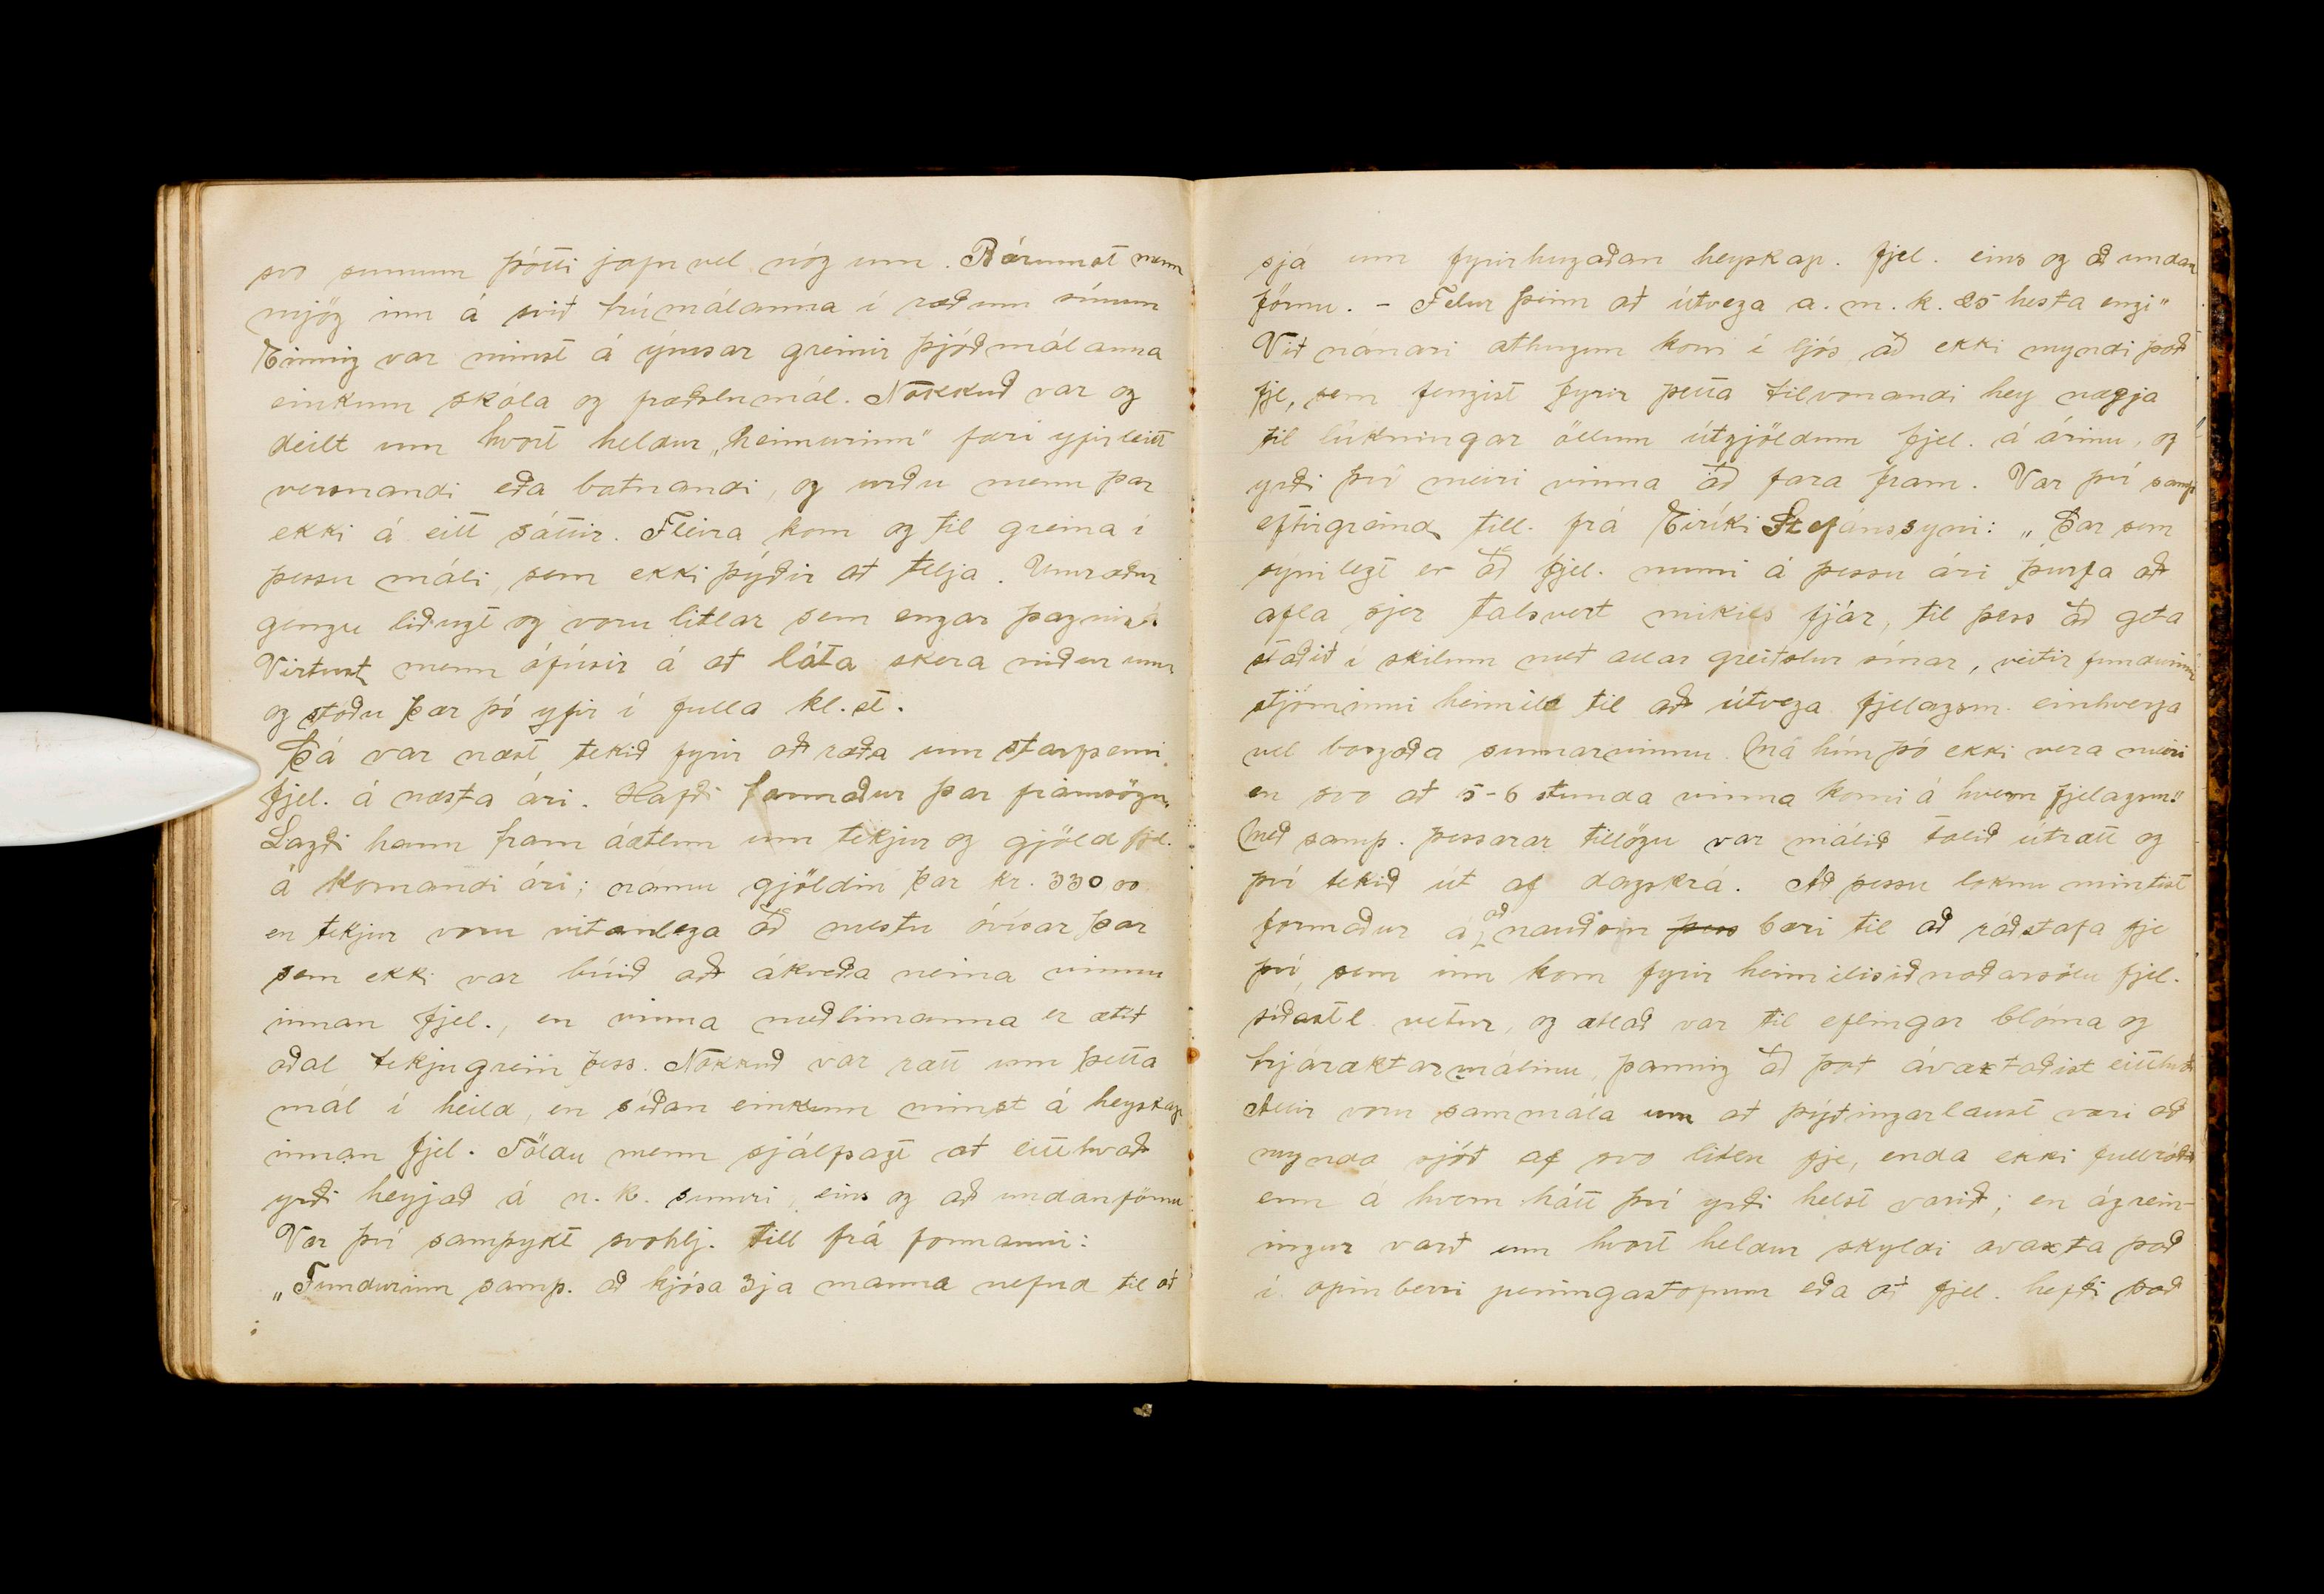 svo sumum þótti jafnvel nóg um. Bárumst menn
mjög inn á svið trúmálanna í ræðum sínum
Einnig var minst á ýmsar greinir þjóðmálanna
einkum skóla og fræðslumál. Nokkuð var og
deilt um hvort heldur „heimurinn“ færi yfirleitt
versnandi eða batnandi, og urðu menn þar
ekki á eitt sáttir. Fleira kom og til greina í
þessu máli, sem ekki þýðir at telja. Umræður
gengu liðugt og voru litlar sem engar þagnir á.
Virtust menn ófúsir á at láta skera niður umr
og stóðu þær þó yfir í fulla kl.st.
Þá var næst tekið fyrir að ræða um starfsemi
fjel. á næsta ári. Hafði formaður þar framsögu.
Lagði hann fram áætlun um tekjur og gjöld fjel.
á komandi ári; námu gjöldin þar kr. 330 00
en tekjur voru vitanlega að mestu óvísar þar
sem ekki var búið að ákveða neina vinnu
innan fjel., en vinna meðlimanna er ætíð
aðal tekjugrein þess. Nokkuð var rætt um þetta
mál í heild, en síðan einkum minst á heyskap
innan fjel. Töldu menn sjálfsagt at eitthvað
yrði heyjað á n.k. sumri, eins og að undanförnu
Var því samþykt svohlj. till frá formanni:
„Fundurinn samþ. að kjósa 3ja manna nefnd til at
sjá um fyrirhugaðan heyskap. fjel. eins og að undan
förnu. - Felur þeim at útvega a.m.k. 25 hesta engi“
Við nánari athugun kom í ljós að ekki myndi það
fje, sem fengist fyrir þetta tilvonandi hey nægja
til lúkningar öllum útgjöldum fjel. á árinu, og
yrði því meiri vinna að fara fram. Var því samþ
eftirgreind till. frá Eiríki Stefánssyni: „Þar sem
sýnilegt er að fjel. muni á þessu ári þurfa að
afla sjer talsvert mikils fjár, til þess að geta
staðið í skilum með allar greiðslur sínar, veitir fundurinn
stjórninni heimild til að útvega fjelagsm. einhverja
vel borgaða sumarvinnu. Má hún þó ekki vera meiri
en svo at 5-6 stunda vinna komi á hvern fjelagsm.“
Með samþ. þessarar tillögu var málið talið útrætt og
því tekið út af dagskrá. Að þessu loknu mintist
formaður á, að nauðsyn þess bæri til að ráðstafa fje
því, sem inn kom fyrir heimilisiðnaðarsölu fjel.
síðastl. vetur, og ætlað var til eflingar blóma og
trjáræktarmálinu, þannig að það ávaxtaðist eitthvað
Allir voru sammála um at þýðingarlaust væri að
mynda sjóð af svo litlu fje, enda ekki fullráðið
enn á hvern hátt því yrði helst varið; en ágrein-
ingur varð um hvort heldur skyldi avaxta það
í opinberri peningastofnun eða at fjel. hefði það